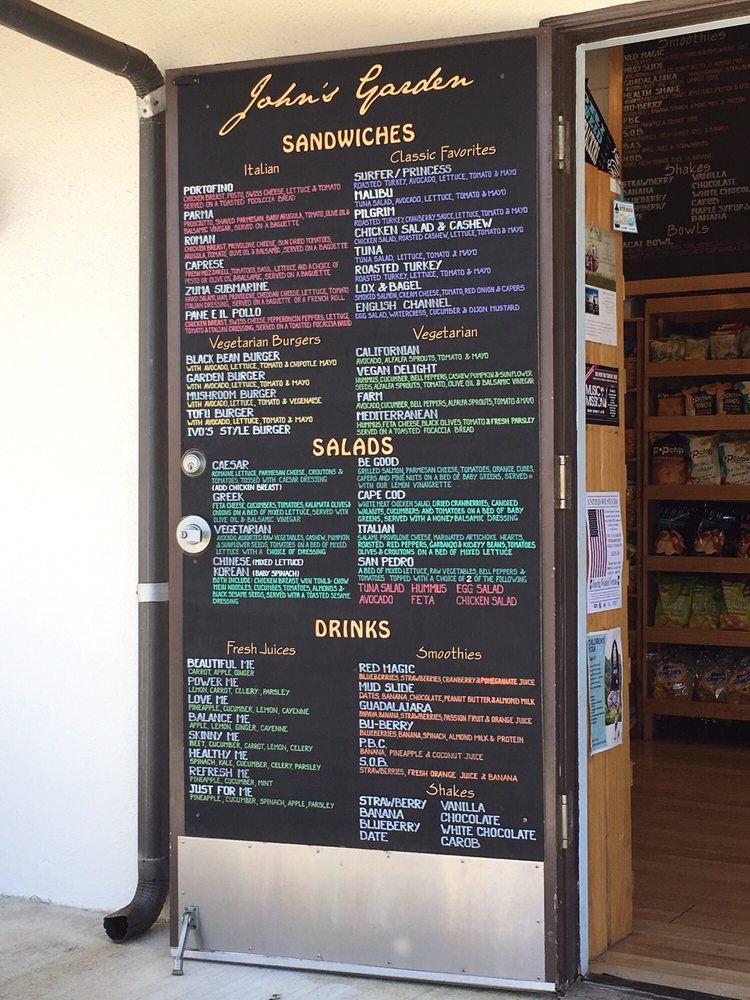 John's Garden
SANDWICHES
Italian
PORTOFINO
CHICKEN BREAST, PESTO, SWISS CHEESE, LETTUCE & TOMATO
SERVED ON A TOASTED FOCACCIA BREAD
PARMA
PROSCIUTTO, SHAVED PARMESAN, BABY ARUGULA, TOMATO, OLIVE OIL &
BALSAMIC VINEGAR, SERVED ON A BAGUETTE
ROMAN
CHICKEN BREAST, PROVOLONE CHEESE, SUN DRIED TOMATOES,
ARUGULA, TOMATO, OLIVE OIL & BALSAMIC, SERVED ON A BAGUETTE
CAPRESE
FRESH MOZZARELLA, TOMATOES, BASIL, LETTUCE AND A CHOICE OF
PESTO OR OLIVE OIL & BALSAMIC, SERVED ON A BAGUETTE
ZUMA SUBMARINE
HARD SALAMI, HAM, PROVOLONE, CHEDDAR CHEESE, LETTUCE, TOMATO
ITALIAN DRESSING, SERVED ON A BAGUETTE OR A FRENCH ROLL
PANE E IL POLLO
CHICKEN BREAST, SWISS CHEESE, PEPPERONCINI PEPPERS, LETTUCE,
TOMATO & ITALIAN DRESSING, SERVED ON A TOASTED FOCACCIA BREAD
Classic Favorites
SURFER/PRINCESS
ROASTED TURKEY, AVOCADO, LETTUCE, TOMATO & MAYO
MALIBU
TUNA SALAD, AVOCADO, LETTUCE, TOMATO & MAYO
PILGRIM
ROASTED TURKEY, CRANBERRY SAUCE, LETTUCE, TOMATO & MAYO
CHICKEN SALAD & CASHEW
CHICKEN SALAD, ROASTED CASHEW, LETTUCE, TOMATO & MAYO
TUNA
TUNA SALAD, LETTUCE, TOMATO & MAYO
ROASTED TURKEY
ROASTED TURKEY, LETTUCE, TOMATO & MAYO
LOX & BAGEL
SMOKED SALMON, CREAM CHEESE, TOMATO, RED ONION & CAPERS
ENGLISH CHANNEL
EGG SALAD, WATERCRESS, CUCUMBER & DIJON MUSTARD
Vegetarian Burgers
BLACK BEAN BURGER
WITH AVOCADO, LETTUCE, TOMATO & CHIPOTLE MAYO
GARDEN BURGER
WITH AVOCADO, LETTUCE, TOMATO & MAYO
MUSHROOM BURGER
WITH AVOCADO, LETTUCE, TOMATO & VEGENAISE
TOFU BURGER
WITH AVOCADO, LETTUCE, TOMATO & MAYO
IVO'S STYLE BURGER
Vegetarian
CALIFORNIAN
AVOCADO, ALFALFA SPROUTS, TOMATO & MAYO
VEGAN DELIGHT
HUMMUS, CUCUMBER, BELL PEPPERS, CASHEW, PUMPKIN & SUNFLOWER
SEEDS, ALFALFA SPROUTS, TOMATO, OLIVE OIL & BALSAMIC VINEGAR
FARM
AVOCADO, CUCUMBER, BELL PEPPERS, ALFALFA SPROUTS, TOMATO & MAYO
MEDITERRANEAN
HUMMUS, FETA CHEESE, BLACK OLIVES, TOMATO & FRESH PARSLEY
SERVED ON A TOASTED FOCACCIA BREAD
SALADS
CAESAR
ROMAINE LETTUCE, PARMESAN CHEESE, CROUTONS &
TOMATOES, TOSSED WITH CAESAR DRESSING
(ADD CHICKEN BREAST)
GREEK
FETA CHEESE, CUCUMBERS, TOMATOES, KALAMATA OLIVES &
ONIONS ON A BED OF MIXED LETTUCE, SERVED WITH
OLIVE OIL & BALSAMIC VINEGAR
VEGETARIAN
AVOCADO, ASSORTED RAW VEGETABLES, CASHEW, PUMPKIN
& SUNFLOWER SEEDS, TOMATOES ON A BED OF MIXED
LETTUCE WITH A CHOICE OF DRESSING
CHINESE (MIXED LETTUCE)
KOREAN (BABY SPINACH)
BOTH INCLUDE: CHICKEN BREAST, WON TON & CHOW
MEIN NOODLES, CUCUMBER, TOMATOES, ALMONDS &
BLACK SESAME SEEDS, SERVED WITH A TOASTED SESAME
DRESSING
BE GOOD
GRILLED SALMON, PARMESAN CHEESE, TOMATOES, ORANGE CUBES,
CAPERS AND PINE NUTS ON A BED OF BABY GREENS, SERVED
WITH OUR LEMON VINAIGRETTE
CAPE COD
WHITE MEAT CHICKEN SALAD, DRIED CRANBERRIES, CANDIED
WALNUTS, CUCUMBERS AND TOMATOES ON A BED OF BABY
GREENS, SERVED WITH A HONEY BALSAMIC DRESSING
ITALIAN
SALAMI, PROVOLONE CHEESE, MARINATED ARTICHOKE HEARTS,
ROASTED RED PEPPERS, GARBANZO & KIDNEY BEANS, TOMATOES
OLIVES & CROUTONS ON A BED OF MIXED LETTUCE
SAN PEDRO
A BED OF MIXED LETTUCE, RAW VEGETABLES, BELL PEPPERS &
TOMATOES TOPPED WITH A CHOICE OF 2 OF THE FOLLOWING
TUNA SALAD HUMMUS EGG SALAD
AVOCADO FETA CHICKEN SALAD
DRINKS
Fresh Juices
BEAUTIFUL ME
CARROT, APPLE, GINGER
POWER ME
LEMON, CARROT, CELERY, PARSLEY
LOVE ME
APPLE, CUCUMBER, LEMON, CAYENNE
BALANCE ME
APPLE, LEMON, GINGER, CAYENNE
SKINNY ME
BEET, CUCUMBER, CARROT, LEMON, CELERY
HEALTHY ME
SPINACH, KALE, CUCUMBER, CELERY, PARSLEY
REFRESH ME
PINEAPPLE, CUCUMBER, MINT
JUST FOR ME
PINEAPPLE, CUCUMBER, SPINACH, APPLE, PARSLEY
Smoothies
RED MAGIC
BLUEBERRIES, STRAWBERRIES, CRANBERRY & POMEGRANATE JUICE
MUD SLIDE
DATES, BANANA, CHOCOLATE, PEANUT BUTTER & ALMOND MILK
GUADALAJARA
PAPAYA, BANANA, STRAWBERRIES, PASSION FRUIT & ORANGE JUICE
BU-BERRY
BLUEBERRIES, BANANA, SPINACH, ALMOND MILK & PROTEIN
P.B.C.
BANANA, PINEAPPLE & COCONUT JUICE
S.O.B.
STRAWBERRIES, FRESH ORANGE JUICE & BANANA
Shakes
STRAWBERRY VANILLA
BANANA CHOCOLATE
BLUEBERRY WHITE CHOCOLATE
DATE CAROB
Smoothies
RED MAGIC
MUD SLIDE
GUADALAJARA
HEALTH SHAKE
BU-BERRY
P.B.C.
S.O.B.
Shakes
STRAWBERRY VANILLA
BANANA CHOCOLATE
WHITE CHOC
CAROB
MAPLE SYRUP &
BANANA
Bowls
ACAI BOWL
MUSIC
MISSION
popchips